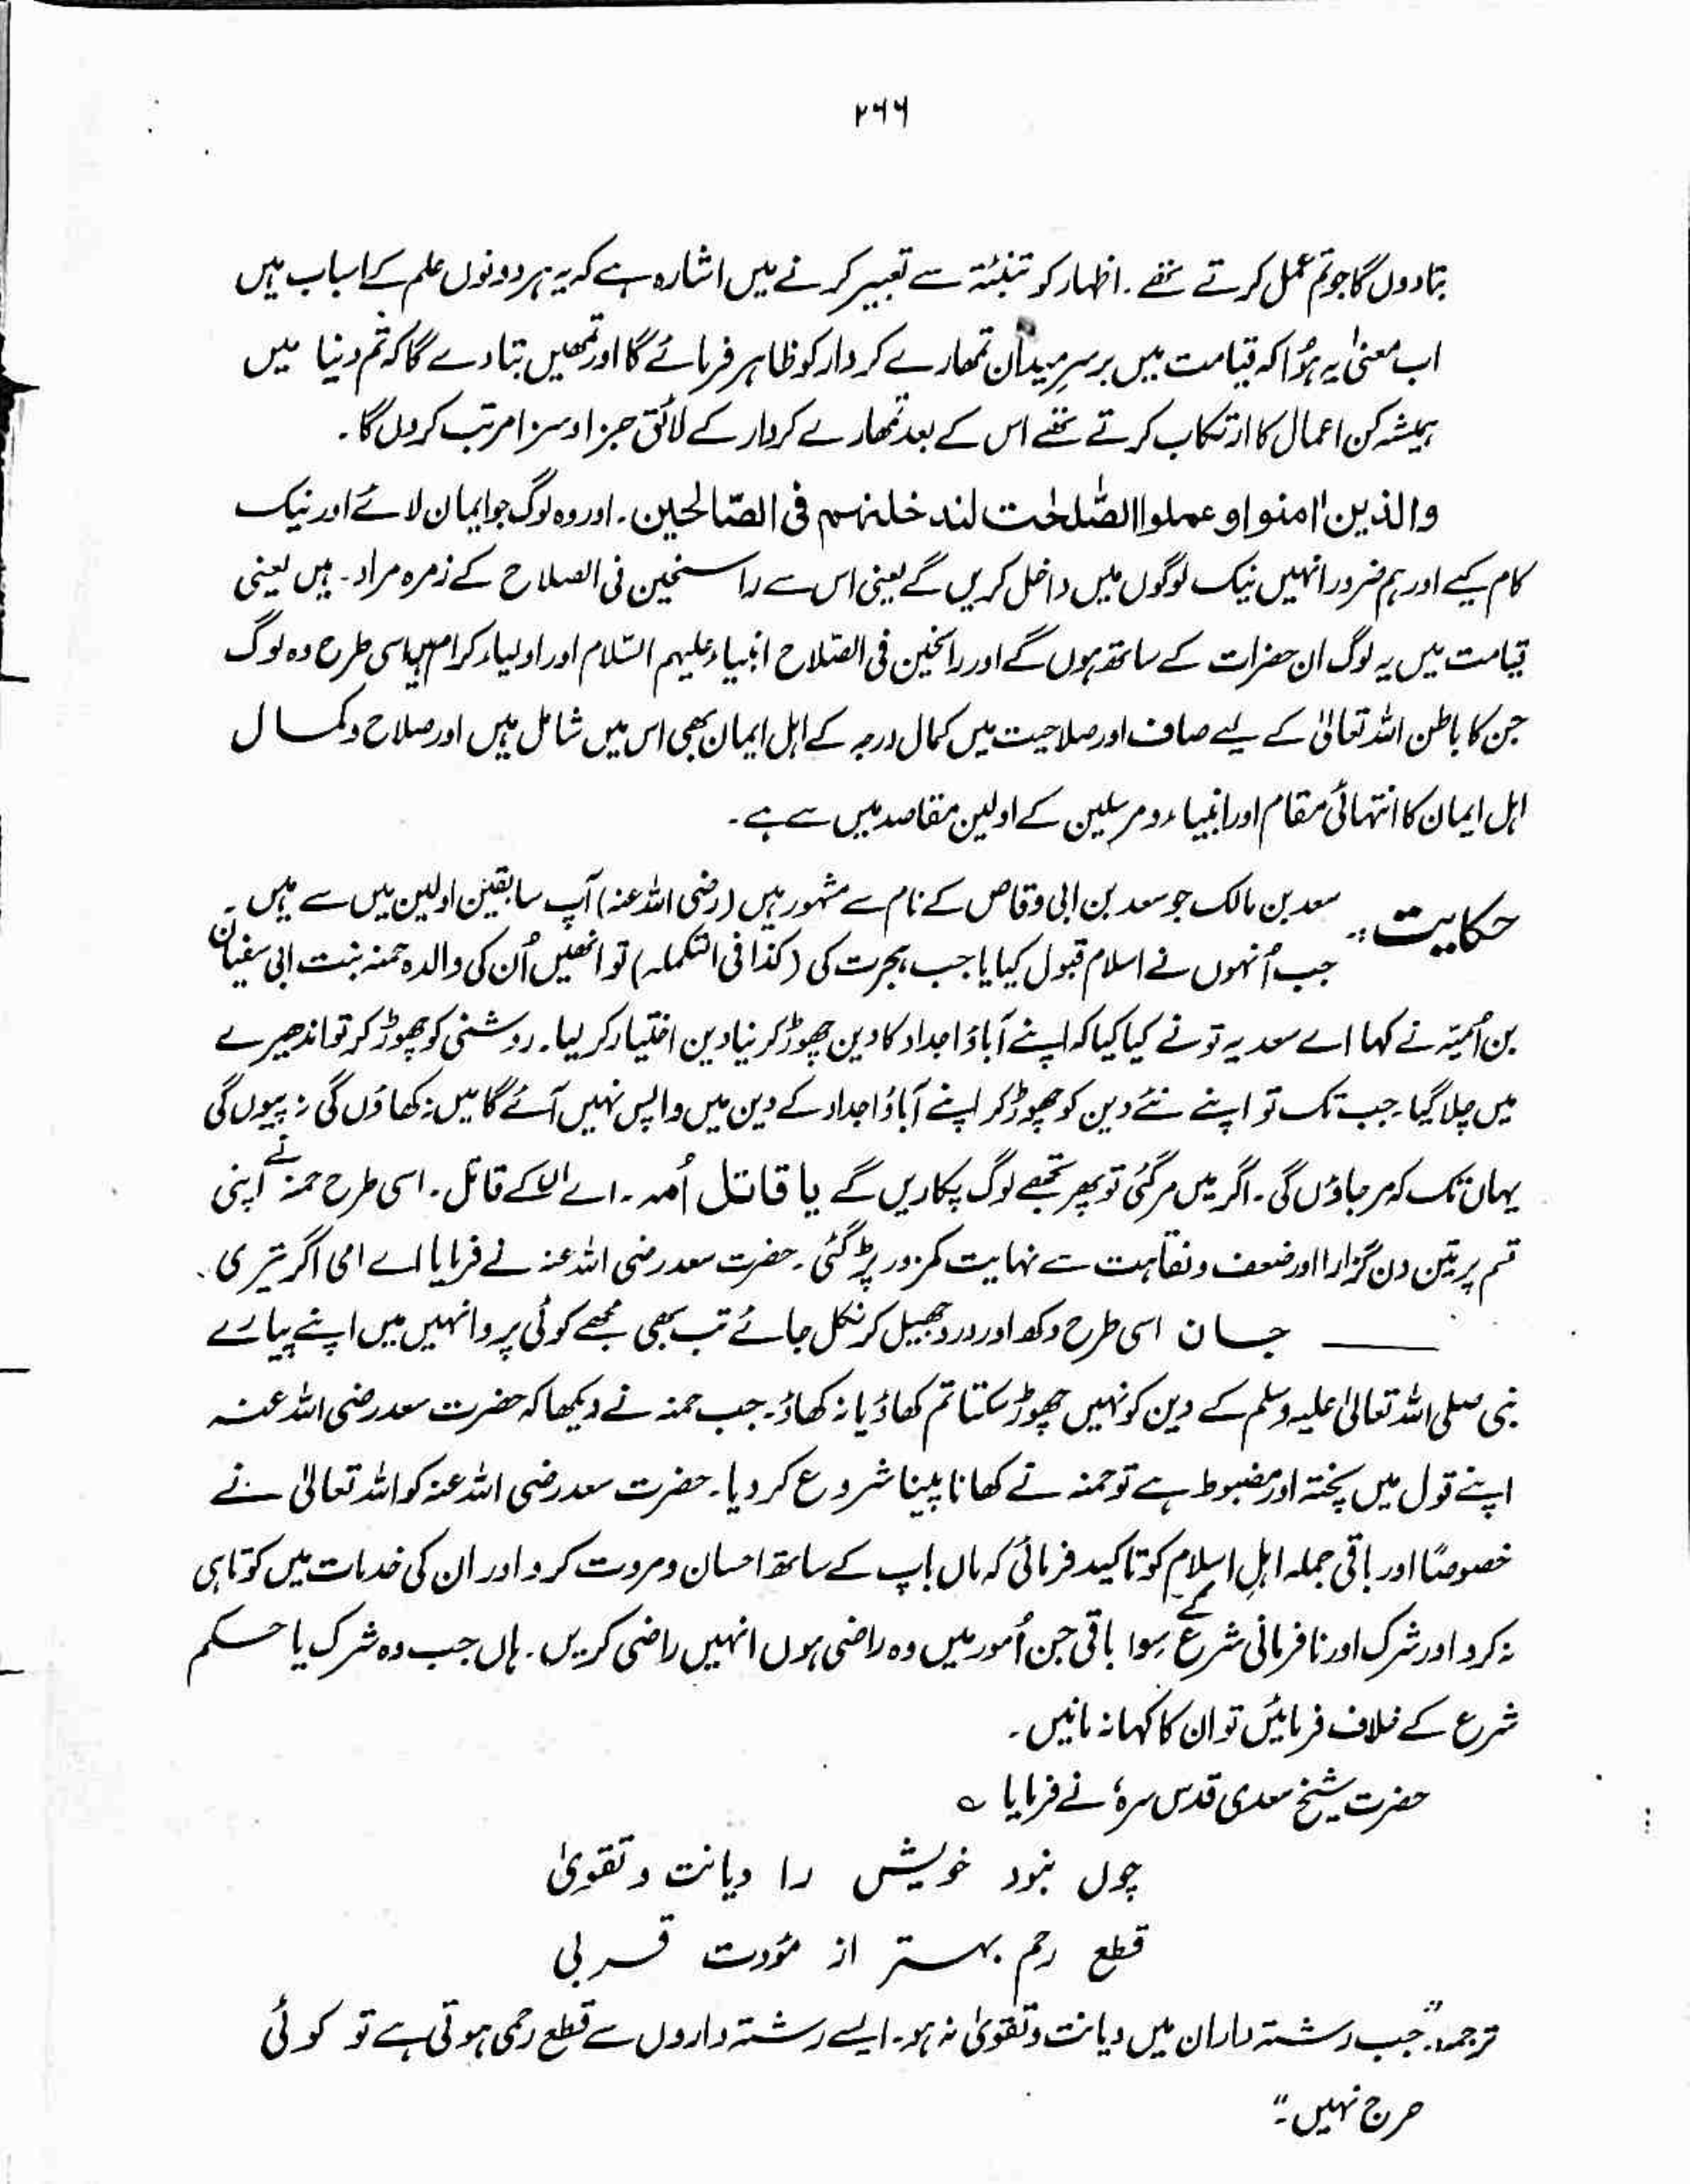 ۲۶۶
بتا دوں گا جو تم عمل کرتے تھے۔ اظہار کو تنبئۃ سے تعبیر کرنے میں اشارہ ہے کہ یہ ہر دونوں علم کے اسباب ہیں
اب معنیٰ یہ ہُوا کہ قیامت میں برسرِ میدان تمھارے کردار کو ظاہر فرمائے گا اور تمھیں بتا دے گا کہ تم دنیا میں
ہمیشہ کن اعمال کا ارتکاب کرتے تھے اس کے بعد تمھارے کردار کے لائق جزا و سزا مرتب کروں گا۔
والذین اٰمنوا و عملوا الصّٰلحٰت لندخلنھم فی الصّالحین۔ اور وہ لوگ جو ایمان لائے اور نیک
کام کیے اور ہم ضرور انہیں نیک لوگوں میں داخل کریں گے یعنی اس سے راسخین فی الصلاح کے زمرہ مراد۔ ہیں یعنی
قیامت میں یہ لوگ ان حضرات کے ساتھ ہوں گے اور راسخین فی الصّلاح انبیاء علیہم السّلام اور اولیاء کرام ہیں اسی طرح وہ لوگ
جن کا باطن اللہ تعالیٰ کے لیے صاف اور صلاحیت میں کمال درجہ کے اہل ایمان بھی اس میں شامل ہیں اور صلاح و کمال
اہل ایمان کا انتہائی مقام اور انبیاء و مرسلین کے اولین مقاصد میں سے ہے۔
حکایت : سعد بن مالک جو سعد بن ابی وقاص کے نام سے مشہور ہیں (رضی اللہ عنہ) آپ سابقین اولین میں سے ہیں۔
جب اُنہوں نے اسلام قبول کیا یا جب ہجرت کی (کذا فی التکملہ) تو انھیں اُن کی والدہ حمنہ بنت ابی سفیان
بن اُمیّہ نے کہا اے سعد یہ تو نے کیا کیا کہ اپنے آباؤ اجداد کا دین چھوڑ کر نیا دین اختیار کر لیا۔ روشنی کو چھوڑ کر تو اندھیرے
میں چلا گیا۔ جب تک تو اپنے نئے دین کو چھوڑ کر اپنے آباؤ اجداد کے دین میں واپس نہیں آئے گا میں نہ کھاؤں گی نہ پیوں گی
یہاں تک کہ مر جاؤں گی۔ اگر میں مر گئی تو پھر تجھے لوگ پکاریں گے یا قاتل اُمہ۔ اے ماں کے قاتل۔ اسی طرح حمنہ نے اپنی
قسم پر تین دن گزارا اور ضعف و نقاہت سے نہایت کمزور پڑ گئی۔ حضرت سعد رضی اللہ عنہ نے فرمایا اے امی اگر تیری
جان اسی طرح دکھ اور درد جھیل کر نکل جائے تب بھی مجھے کوئی پروا نہیں میں اپنے پیارے
نبی صلی اللہ تعالیٰ علیہ وسلم کے دین کو نہیں چھوڑ سکتا تم کھاؤ یا نہ کھاؤ۔ جب حمنہ نے دیکھا کہ حضرت سعد رضی اللہ عنہ
اپنے قول میں پختہ اور مضبوط ہے تو حمنہ نے کھانا پینا شروع کر دیا۔ حضرت سعد رضی اللہ عنہ کو اللہ تعالیٰ نے
خصوصًا اور باقی جملہ اہلِ اسلام کو تاکید فرمائی کہ ماں باپ کے ساتھ احسان و مروت کرو اور ان کی خدمات میں کوتاہی
نہ کرو اور شرک اور نافرمانی شرع کے سِوا باقی جن اُمور میں وہ راضی ہوں انہیں راضی کریں۔ ہاں جب وہ شرک یا حکم
شرع کے خلاف فرمائیں تو ان کا کہا نہ مانیں۔
حضرت شیخ سعدی قدس سرہٗ نے فرمایا ؎
چوں نبود خویش را دیانت و تقویٰ
قطع رحم بہتر از مؤدت قربی
ترجمہ: "جب رشتہ داران میں دیانت و تقویٰ نہ ہو۔ ایسے رشتہ داروں سے قطع رحمی ہوتی ہے تو کوئی
حرج نہیں۔"